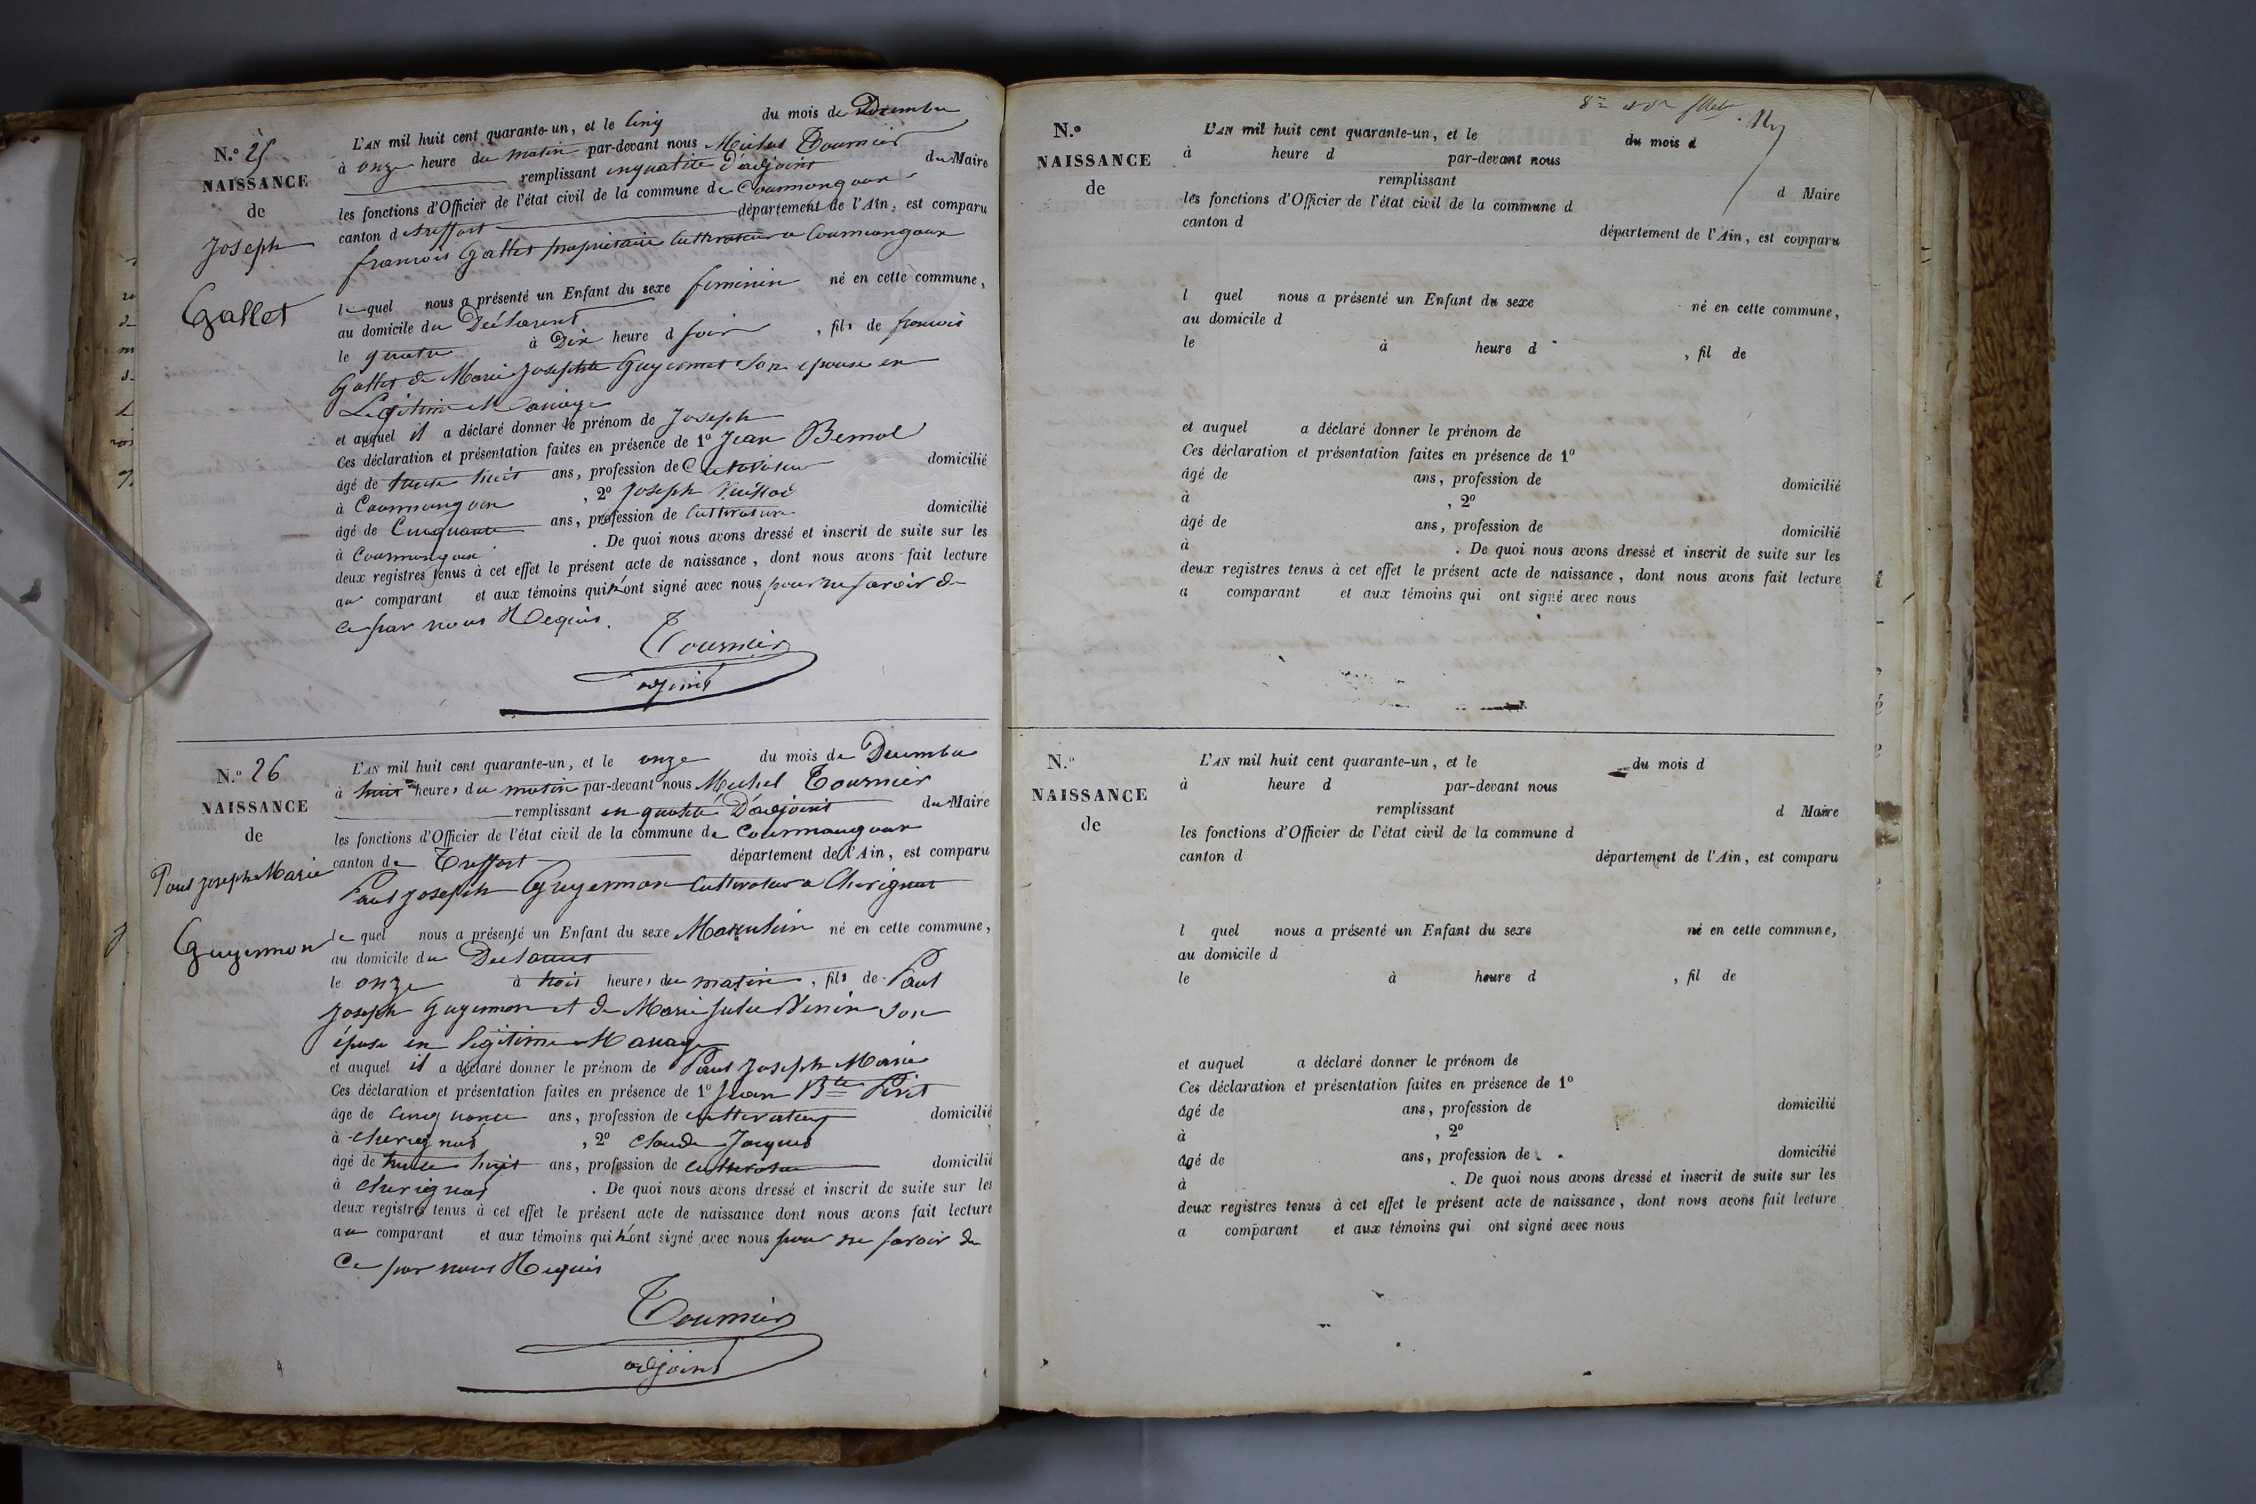 N.º 25
NAISSANCE
de
Joseph
Gallet
L'AN mil huit cent quarante-un, et le cinq du mois de Décembre
à onze heure du matin par-devant nous Michel Tournier
remplissant en qualité d'adjoint du Maire
les fonctions d'Officier de l'état civil de la commune de Courmangoux
canton de treffort département de l'Ain, est comparu
francois Gallet propriétaire Cultivateur a Courmangoux
le quel nous a présenté un Enfant du sexe feminin né en cette commune,
au domicile du Déclarant
le quatre à Dix heure d soir, fils de francois
Gallet de Marie Josephte Guyennet Son epouse en
Legitime Mariage
et auquel il a déclaré donner le prénom de Joseph
Ces déclaration et présentation faites en présence de 1º Jean
âgé de trente huit ans, profession de Cultivateur domicilié
à Courmangoux, 2º Joseph
âgé de Cinquante ans, profession de Cultivateur domicilié
à Courmangoux. De quoi nous avons dressé et inscrit de suite sur les
deux registres tenus à cet effet le présent acte de naissance, dont nous avons fait lecture
au comparant et aux témoins qui n'ont signé avec nous pour ne savoir de
ce par nous Requis.
Tournier
adjoint
N.º 26
NAISSANCE
de
Paul Joseph Marie
Guyennon
L'AN mil huit cent quarante-un, et le onze du mois de Decembre
à huit heures du matin par-devant nous Michel Tournier
remplissant en qualité D'adjoint du Maire
les fonctions d'Officier de l'état civil de la commune de Courmangoux
canton de Treffort département de l'Ain, est comparu
Paul Joseph Guyennon Cultivateur a Chevignat
le quel nous a présenté un Enfant du sexe Masculin né en cette commune,
au domicile du Declarant
le onze à trois heures du matin, fils de Paul
Joseph Guyennon et de Marie Son
épouse en legitime Mariage
et auquel il a déclaré donner le prénom de Paul Joseph Marie
Ces déclaration et présentation faites en présence de 1º Jean Bte
âgé de cinquante ans, profession de cultivateur domicilié
à chevignat, 2º Claude Jacques
âgé de trente huit ans, profession de cultivateur domicilié
à chevignat. De quoi nous avons dressé et inscrit de suite sur les
deux registres tenus à cet effet le présent acte de naissance dont nous avons fait lecture
au comparant et aux témoins qui n'ont signé avec nous pour ne savoir de
Ce par nous Requis
Tournier
adjoint
N.º
NAISSANCE
de
L'AN mil huit cent quarante-un, et le du mois d
à heure d par-devant nous
remplissant d Maire
les fonctions d'Officier de l'état civil de la commune d
canton d département de l'Ain, est comparu
l quel nous a présenté un Enfant du sexe né en cette commune,
au domicile d
le à heure d, fil de
et auquel a déclaré donner le prénom de
Ces déclaration et présentation faites en présence de 1º
âgé de ans, profession de domicilié
à, 2º
âgé de ans, profession de domicilié
à. De quoi nous avons dressé et inscrit de suite sur les
deux registres tenus à cet effet le présent acte de naissance, dont nous avons fait lecture
a comparant et aux témoins qui ont signé avec nous
N.º
NAISSANCE
de
L'AN mil huit cent quarante-un, et le du mois d
à heure d par-devant nous
remplissant d Maire
les fonctions d'Officier de l'état civil de la commune d
canton d département de l'Ain, est comparu
l quel nous a présenté un Enfant du sexe né en cette commune,
au domicile d
le à heure d, fil de
et auquel a déclaré donner le prénom de
Ces déclaration et présentation faites en présence de 1º
âgé de ans, profession de domicilié
à, 2º
âgé de ans, profession de domicilié
à. De quoi nous avons dressé et inscrit de suite sur les
deux registres tenus à cet effet le présent acte de naissance, dont nous avons fait lecture
a comparant et aux témoins qui ont signé avec nous